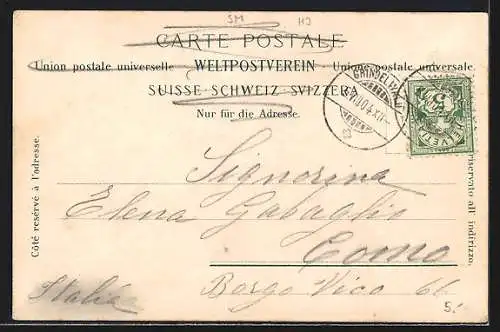 SM HJ
CARTE POSTALE
Union postale universelle WELTPOSTVEREIN Unione postale universale
SUISSE SCHWEIZ SVIZZERA
Nur für die Adresse.
GRINDELWALD
HELVETIA
Côté reservé à l'adresse.
riservato all' indirizzo.
Signorina
Elena Gabaglio
Como
Borgo Vico 66
Italia
5.-